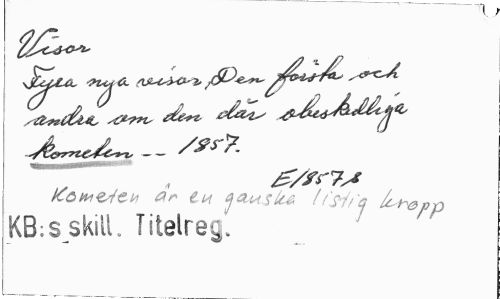 Visor
Fyra nya visor, Den första och
andra om den där obeskedliga
kometen -- 1857.
E1857s
Kometen är en ganska listig kropp
KB:s skill. Titelreg.